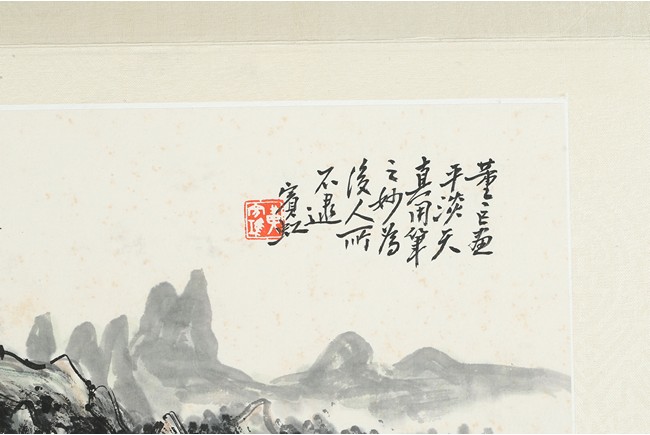 董巨畫
平淡天
真用筆
之妙為
後人所
不逮
賓虹